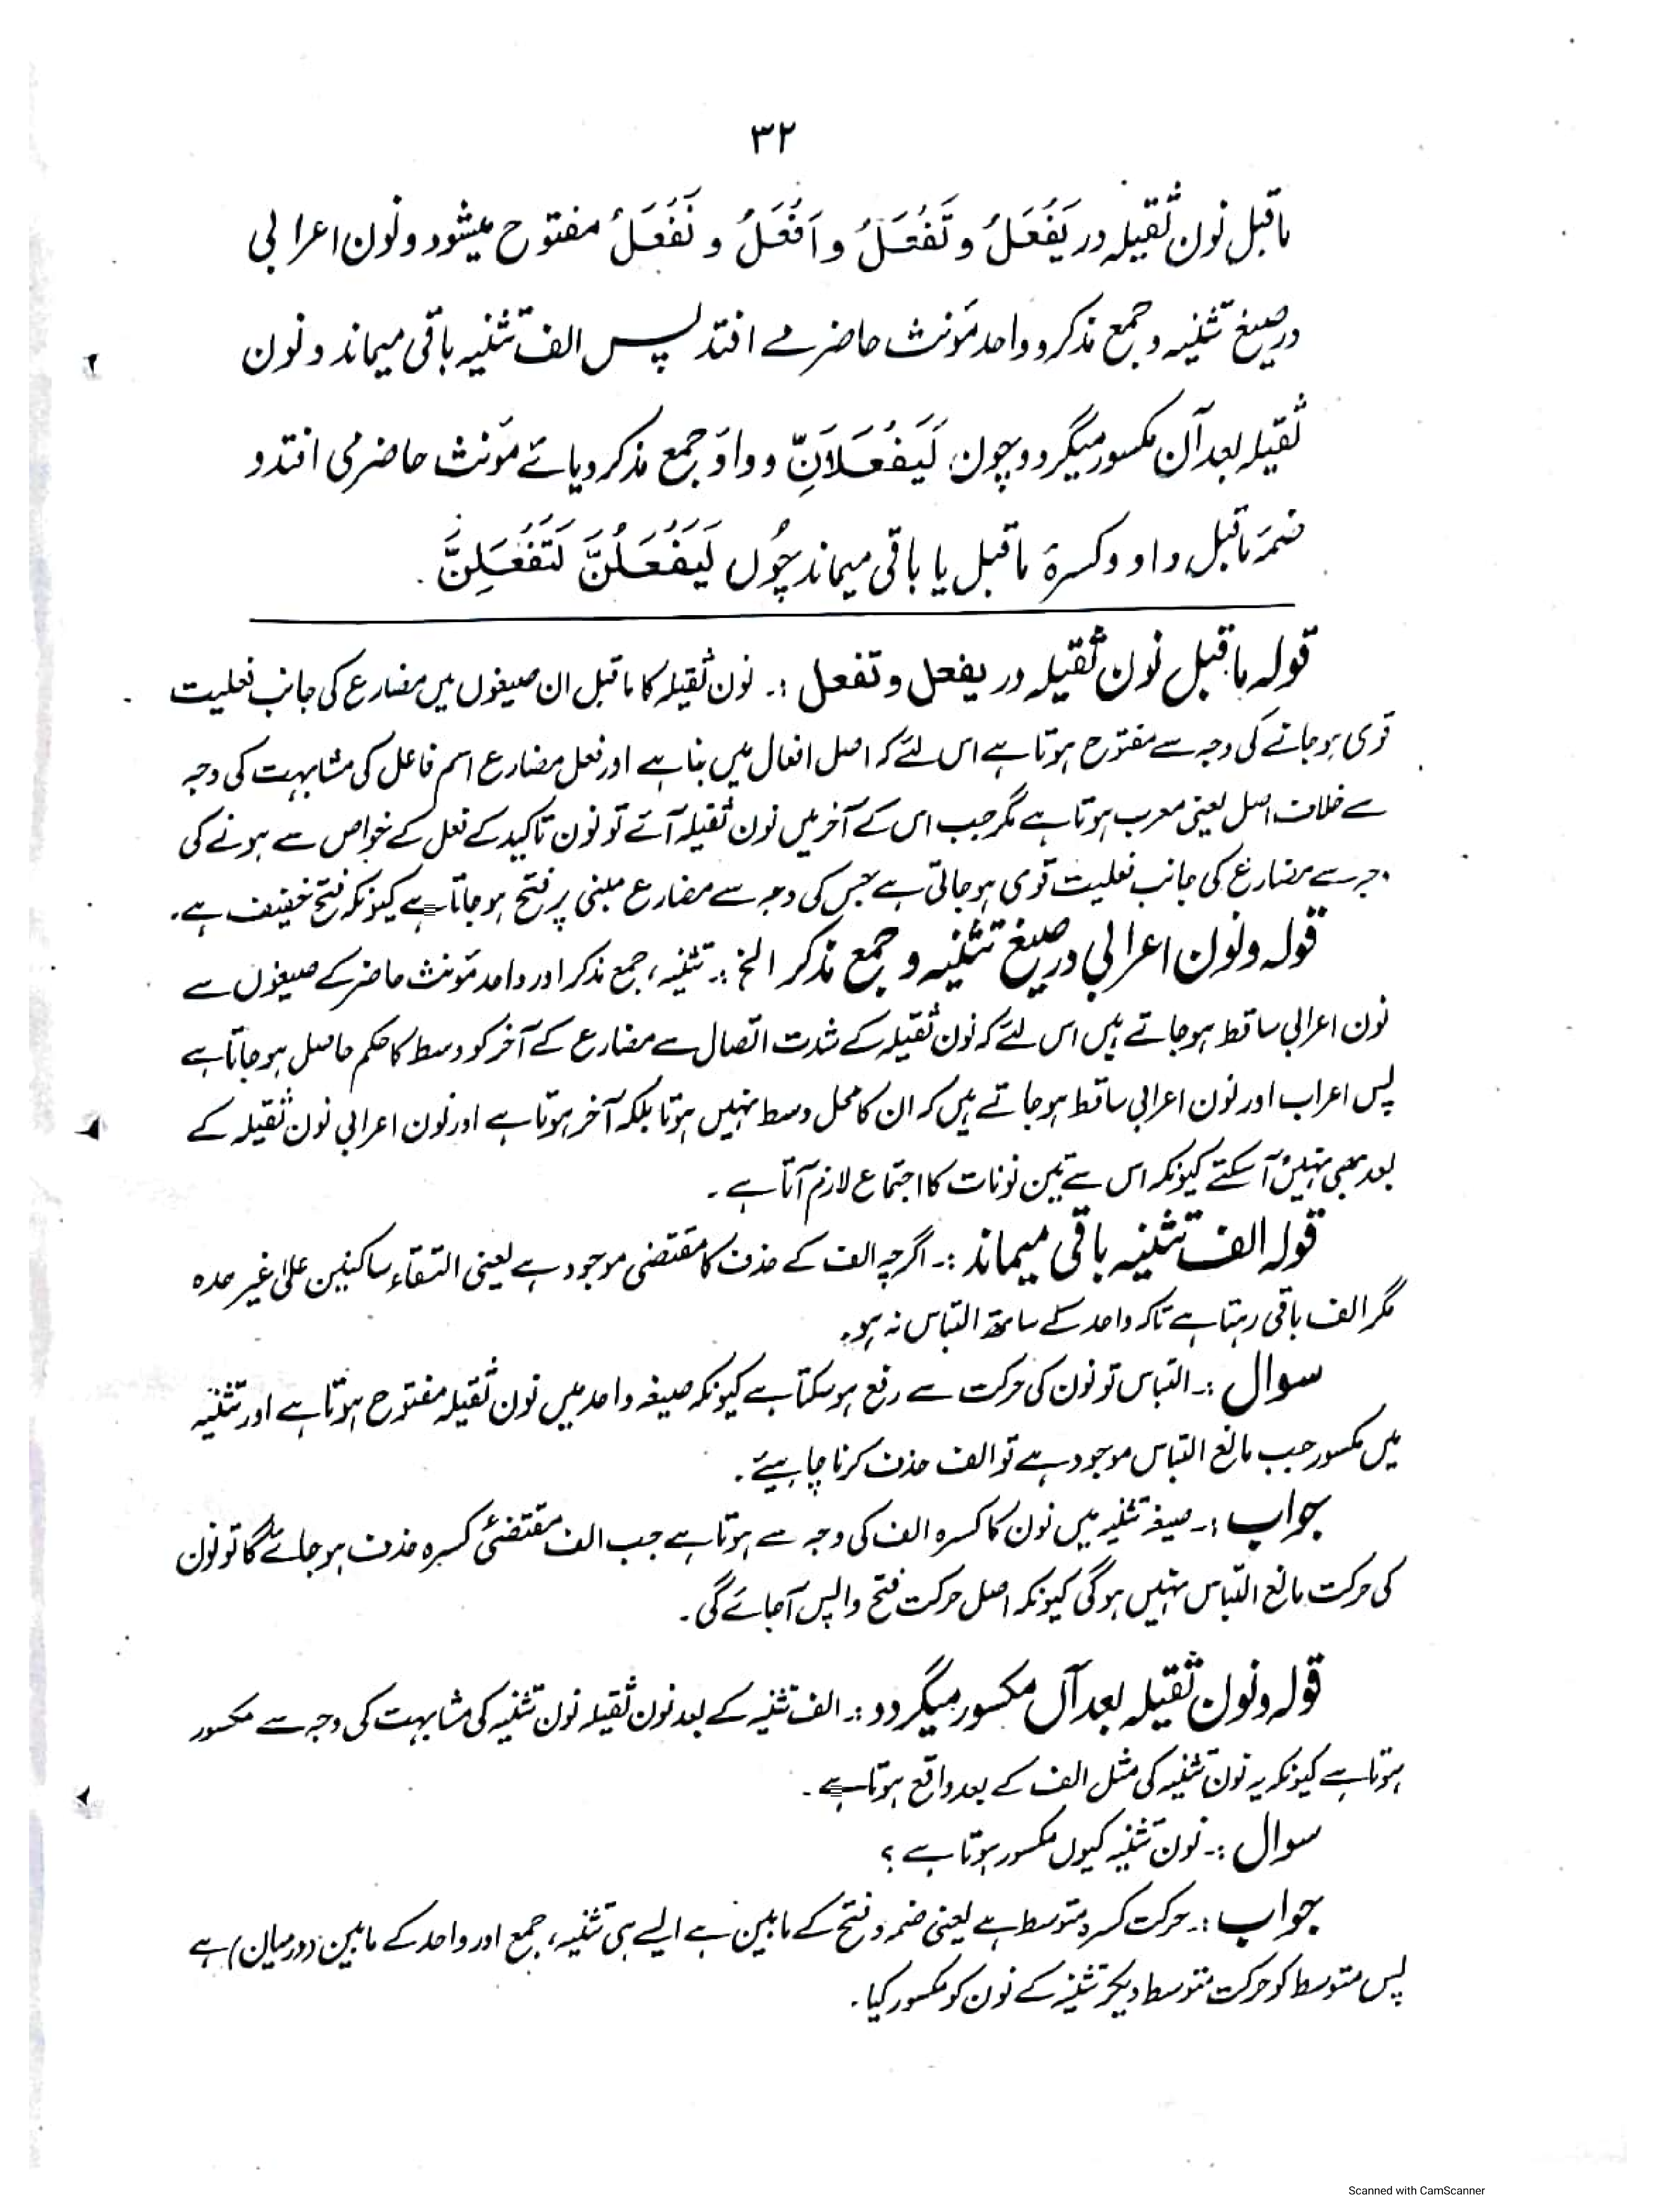 ۳۲
ماقبل نون ثقیلہ در یَفْعَلُ و تَفْعَلُ و اَفْعَلُ و نَفْعَلُ مفتوح میشود و نون اعرابی
در صیغ تثنیہ و جمع مذکر و واحد مؤنث حاضر مے افتد پس الف تثنیہ باقی میماند و نون
ثقیلہ بعد آن مکسور میگردد چون لَیَفْعَلَانِّ و واؤ جمع مذکر و یائے مؤنث حاضر می افتد و
ضمۂ ماقبل واو و کسرۂ ماقبل یا باقی میماند چُوں لَیَفْعَلُنَّ لَتَفْعَلِنَّ .
قولہ ماقبل نون ثقیلہ در یفعل و تفعل :۔ نون ثقیلہ کا ماقبل ان صیغوں میں مضارع کی جانب فعلیت
قوی ہو جانے کی وجہ سے مفتوح ہوتا ہے اس لئے کہ اصل افعال میں بنا ہے اور فعل مضارع اسم فاعل کی مشابہت کی وجہ
سے خلاف اصل یعنی معرب ہوتا ہے مگر جب اس کے آخر میں نون ثقیلہ آئے تو نون تاکید کے فعل کے خواص سے ہونے کی
وجہ سے مضارع کی جانب فعلیت قوی ہو جاتی ہے جس کی وجہ سے مضارع مبنی پر فتح ہو جاتا ہے کیونکہ فتح خفیف ہے۔
قولہ و نون اعرابی در صیغ تثنیہ و جمع مذکر الخ :۔ تثنیہ، جمع مذکر اور واحد مؤنث حاضر کے صیغوں سے
نون اعرابی ساقط ہو جاتے ہیں اس لئے کہ نون ثقیلہ کے شدت اتصال سے مضارع کے آخر کو وسط کا حکم حاصل ہو جاتا ہے
پس اعراب اور نون اعرابی ساقط ہو جاتے ہیں کہ ان کا محل وسط نہیں ہوتا بلکہ آخر ہوتا ہے اور نون اعرابی نون ثقیلہ کے
بعد بھی نہیں آ سکتے کیونکہ اس سے تین نونات کا اجتماع لازم آتا ہے ۔
قولہ الف تثنیہ باقی میماند :۔ اگرچہ الف کے حذف کا مقتضی موجود ہے یعنی التقاء ساکنین علیٰ غیر حدہ
مگر الف باقی رہتا ہے تاکہ واحد کے ساتھ التباس نہ ہو۔
سوال :۔ التباس تو نون کی حرکت سے رفع ہو سکتا ہے کیونکہ صیغہ واحد میں نون ثقیلہ مفتوح ہوتا ہے اور تثنیہ
میں مکسور جب مانع التباس موجود ہے تو الف حذف کرنا چاہیئے ۔
جواب :۔ صیغہ تثنیہ میں نون کا کسرہ الف کی وجہ سے ہوتا ہے جب الف مقتضئ کسرہ حذف ہو جائے گا تو نون
کی حرکت مانع التباس نہیں ہوگی کیونکہ اصل حرکت فتح واپس آجائے گی ۔
قولہ و نون ثقیلہ بعد آں مکسور میگردد :۔ الف تثنیہ کے بعد نون ثقیلہ نون تثنیہ کی مشابہت کی وجہ سے مکسور
ہوتا ہے کیونکہ یہ نون تثنیہ کی مثل الف کے بعد واقع ہوتا ہے ۔
سوال :۔ نون تثنیہ کیوں مکسور ہوتا ہے ؟
جواب :۔ حرکت کسرہ متوسط ہے یعنی ضمہ و فتح کے مابین ہے ایسے ہی تثنیہ، جمع اور واحد کے مابین (درمیان) ہے
پس متوسط کو حرکت متوسط دیکر تثنیہ کے نون کو مکسور کیا ۔
Scanned with CamScanner